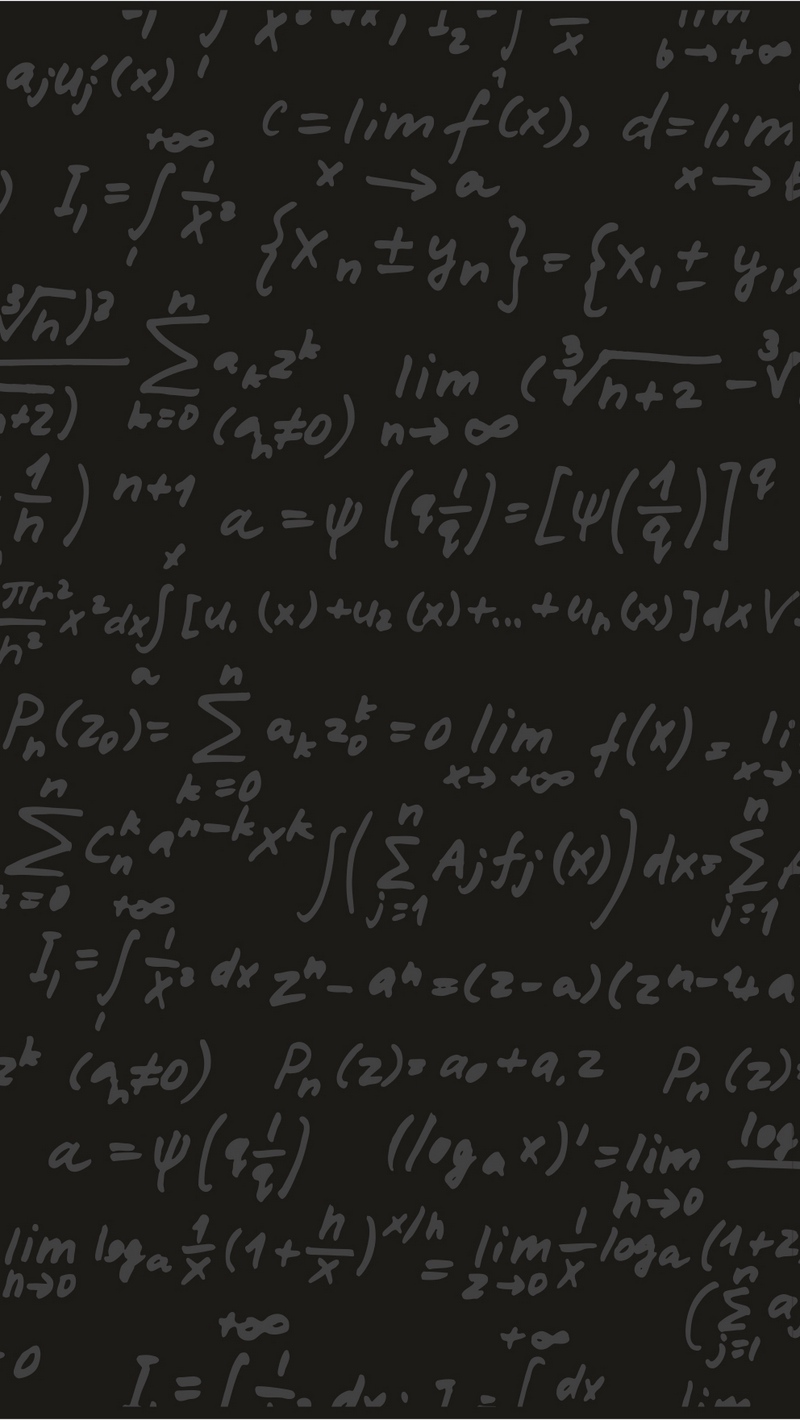 a_j u_j'(x)
c = lim f(x), d = lim
x → a x →
I_1 = ∫_1^{+∞} 1/x²
{x_n ± y_n} = {x_1 ± y_1,
∛n)²
n+2)
∑_{k=0}^{n} a_k z^k
(a_n ≠ 0)
lim_{n→∞} (∛(n+2) − ∛
1/n)^{n+1}
a = ψ(q 1/q) = [ψ(1/q)]^q
πr²/h² x² dx ∫_a^x [u_1(x) + u_2(x) + ... + u_n(x)] dx V
P_n(z_0) = ∑_{k=0}^{n} a_k z_0^k = 0 lim_{x→+∞} f(x) = li
x→
∑_{k=0}^{n} C_n^k a^{n−k} x^k ∫(∑_{j=1}^{n} A_j f_j(x)) dx = ∑_{j=1}^{n}
I_1 = ∫_1^{+∞} 1/x² dx z^n − a^n = (z − a)(z^{n−1} + a
z^k (a_n ≠ 0) P_n(z) = a_0 + a_1 z P_n(z) =
a = ψ(q 1/q) (log_a x)' = lim_{h→0} log
lim_{h→0} log_a 1/x (1 + h/x)^{x/h} = lim_{z→0} 1/x log_a (1 + z
(∑_{j=1}^{n} a_j
0
I_1 = ∫^{+∞} 1 dx ∫^{+∞} dx lim